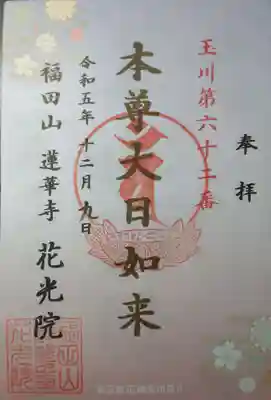 奉拝
玉川第六十二番
本尊大日如来
令和五年十二月九日
福田山 蓮華寺 花光院